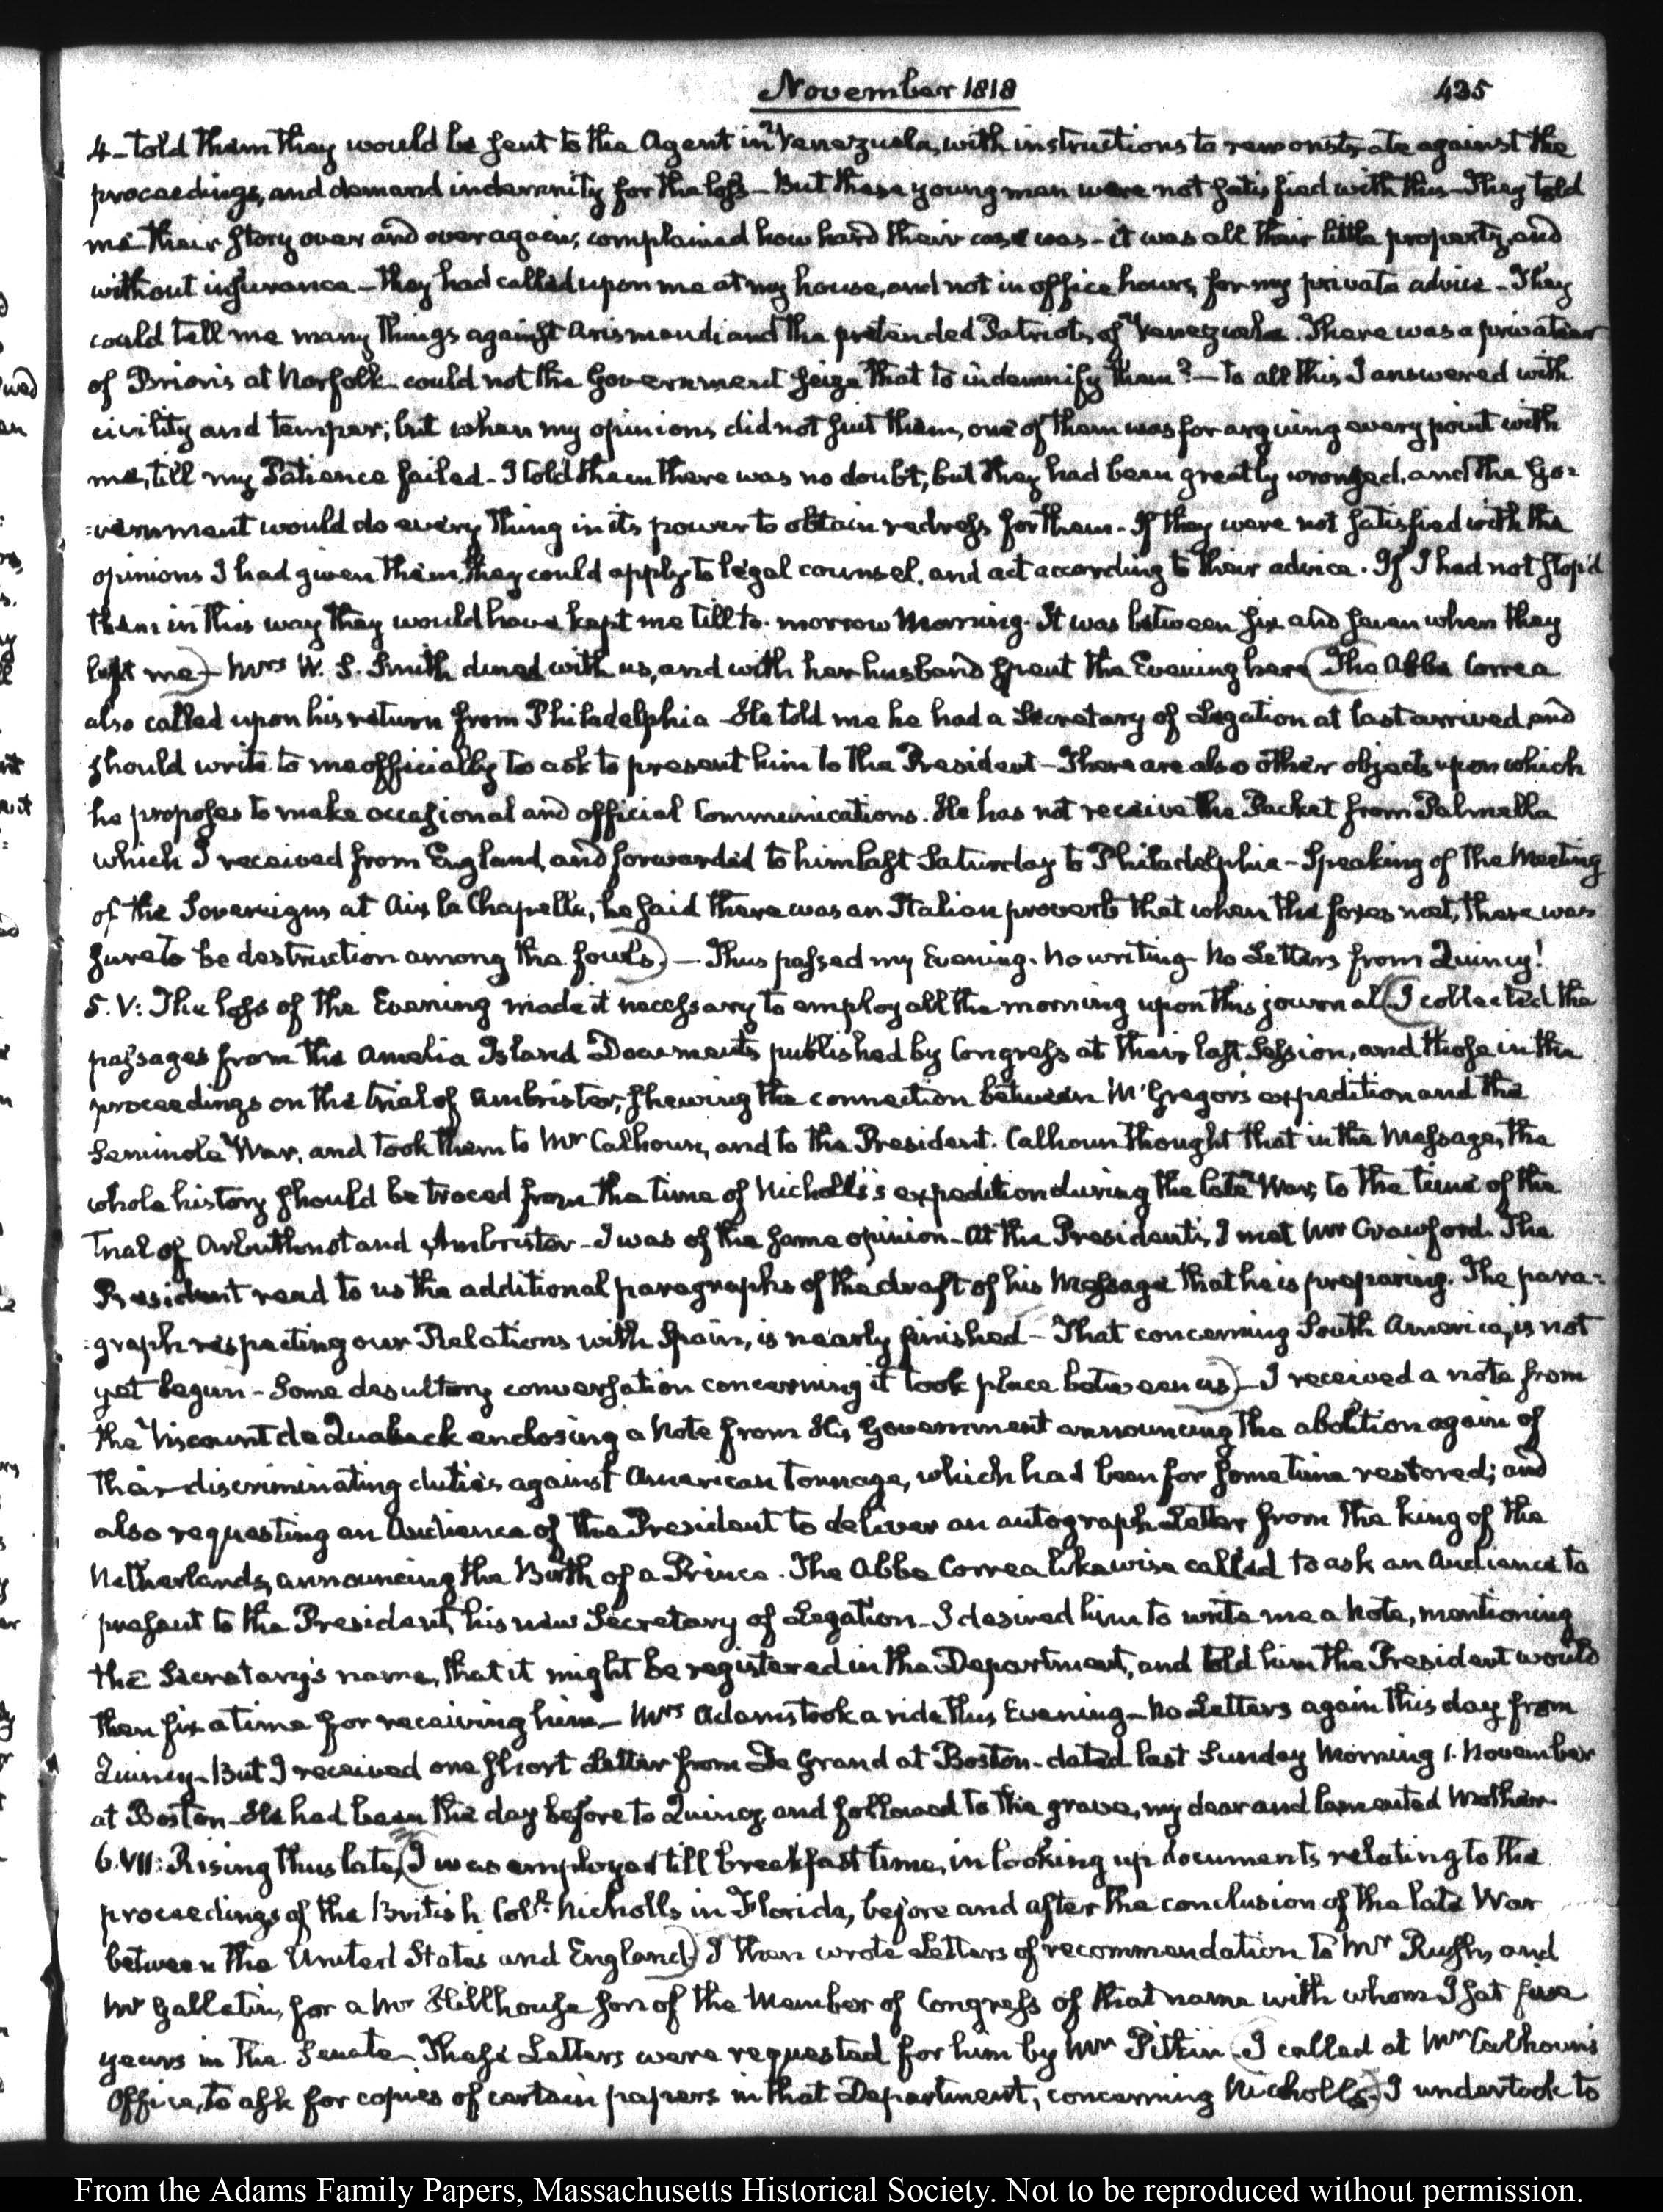 November 1818 435
4- told them they would be sent to the Agent in Venezuela, with instructions to remonstrate against the
proceedings, and demand indemnity for the loss — But these young men were not satisfied with this — They told
me their story over and over again; complained how hard their case was — it was all their little property, and
without insurance — they had called upon me at my house, and not in office hours, for my private advice — They
could tell me many things against Arismendi and the pretended Patriots of Venezuela. There was a privateer
of Brion's at Norfolk — could not the Government seize that to indemnify them? — to all this I answered with
civility and temper; but when my opinions did not suit them, one of them was for arguing every point with
me, till my Patience failed — I told them there was no doubt, but they had been greatly wronged, and the Go=
=vernment would do every thing in its power to obtain redress for them. If they were not satisfied with the
opinions I had given them, they could apply to legal counsel, and act according to their advice. If I had not stop'd
them in this way they would have kept me till to-morrow Morning. It was between six and seven when they
left me) — Mrs W. S. Smith dined with us, and with her husband spent the Evening here (The Abbe Correa
also called upon his return from Philadelphia — He told me he had a Secretary of Legation at last arrived, and
should write to me officially to ask to present him to the President — There are also other objects upon which
he proposes to make occasional and official Communications. He has not receive the Packet from Palmella
which I received from England, and forwarded to him last Saturday to Philadelphia — Speaking of the Meeting
of the Sovereigns at Aix la Chapelle, he said there was an Italian proverb that when the foxes met, there was
sure to be destruction among the fowls.) — Thus passed my Evening. No writing — No Letters from Quincy!
5. V: The loss of the Evening made it necessary to employ all the morning upon this journal (I collected the
passages from the Amelia Island Documents published by Congress at their last Session, and those in the
proceedings on the trial of Ambrister, shewing the connection between McGregor's expedition and the
Seminole War, and took them to Mr Calhoun, and to the President. Calhoun thought that in the Message, the
whole history should be traced from the time of Nicholls's expedition during the late War, to the time of the
Trial of Arbuthnot and Ambrister — I was of the same opinion — At the President's, I met Mr Crawford. The
President read to us the additional paragraphs of the draft of his Message that he is preparing. The para=
=graph respecting our Relations with Spain, is nearly finished — That concerning South America, is not
yet begun — Some desultory conversation concerning it took place between us) — I received a note from
the Viscount de Quabeck enclosing a Note from His Government announcing the abolition again of
their discriminating duties against American Tonnage, which had been for some time restored; and
also requesting an Audience of the President to deliver an autograph Letter from the King of the
Netherlands, announcing the Birth of a Prince. The Abbe Correa likewise called to ask an Audience to
present to the President, his new Secretary of Legation — I desired him to write me a Note, mentioning
the Secretary's name, that it might be registered in the Department, and told him the President would
then fix a time for receiving him — Mrs Adams took a ride this Evening — No Letters again this day from
Quincy — But I received one short Letter from De Grand at Boston — dated last Sunday Morning 1. November
at Boston — He had been the day before to Quincy, and followed to the grave, my dear and lamented Mother.
6. VII: Rising thus late, (I was employed till breakfast time, in looking up documents relating to the
proceedings of the British Coll. Nicholls in Florida, before and after the conclusion of the late War
between the United States and England) I then wrote Letters of recommendation to Mr Rush, and
Mr Gallatin, for a Mr Hillhouse son of the Member of Congress of that name with whom I sat five
years in the Senate — These Letters were requested for him by Mr Pitkin (I called at Mr Calhoun's
Office, to ask for copies of certain papers in that Department, concerning Nicholls.) I undertook to
From the Adams Family Papers, Massachusetts Historical Society. Not to be reproduced without permission.